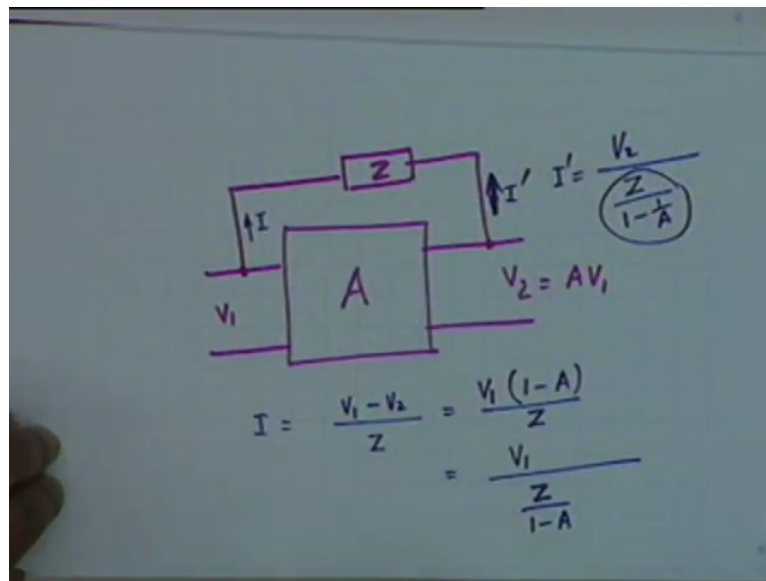 Z
I
I' I' = V₂ / (Z / (1 - 1/A))
A
V₁
V₂ = AV₁
I = (V₁ - V₂) / Z = V₁ (1-A) / Z
= V₁ / (Z / (1-A))